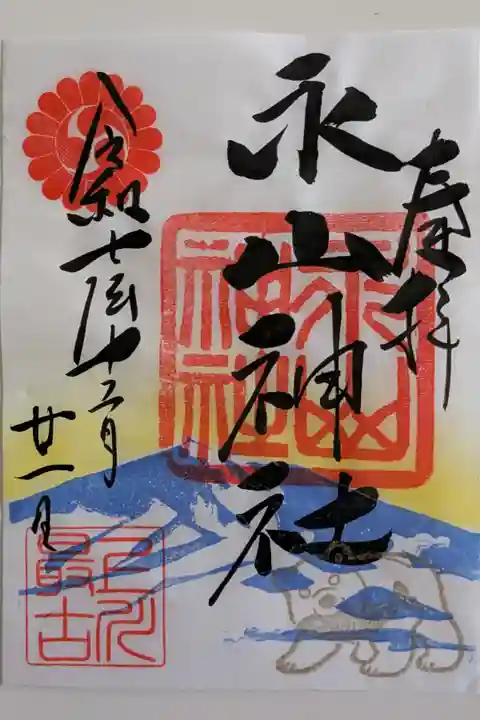 奉拝
永山神社
令和七歳十二月
廿一日
永山神社
上川最古